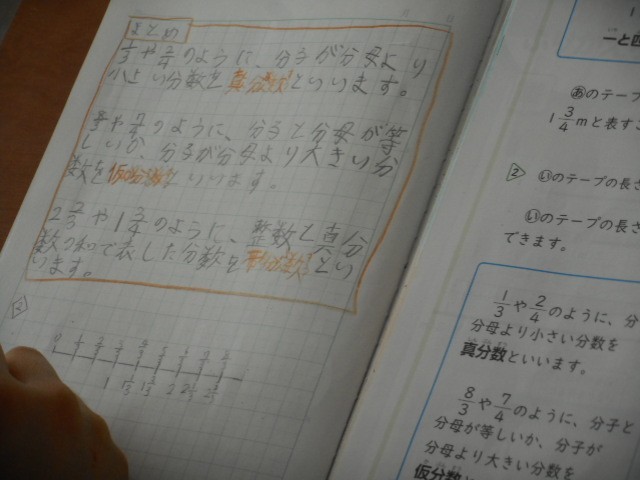 まとめ
1/3や2/4のように、分子が分母より
小さい分数を真分数といいます。
8/3や7/4のように、分子と分母が等
しいか、分子が分母より大きい分
数を仮分数といいます。
2 2/3や1 3/4のように、整数と真分
数の和で表した分数を帯分数とい
います。
0
1 1 1/3 1 2/3 2 2 1/3 2 2/3
ーと四
あのテープ
1 3/4 mと表すこ
2 いのテープの長さ
いのテープの長さ
できます。
1/3や2/4のように、分
分母より小さい分数を
真分数といいます。
8/3や7/4のように、分子と
分母が等しいか、分子が
分母より大きい分数を
仮分数と